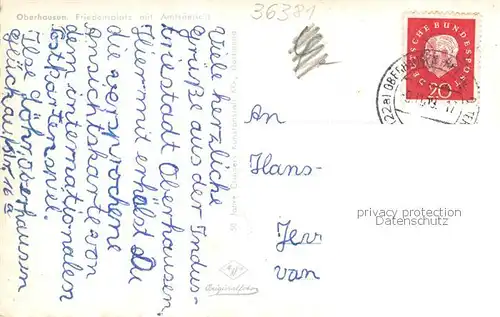 Oberhausen. Friedensplatz mit Amtsgericht
36381
Viele herzliche
Grüße aus der Indus-
triestadt Oberhausen.
Hiermit erhälst Du
die versprochene
Ansichtskarte von
dem internationalen
Postkartenspiel.
Ilse Oberhausen
An
Hans-
van
DEUTSCHE BUNDESPOST
20
privacy protection
Datenschutz
Originalfoto